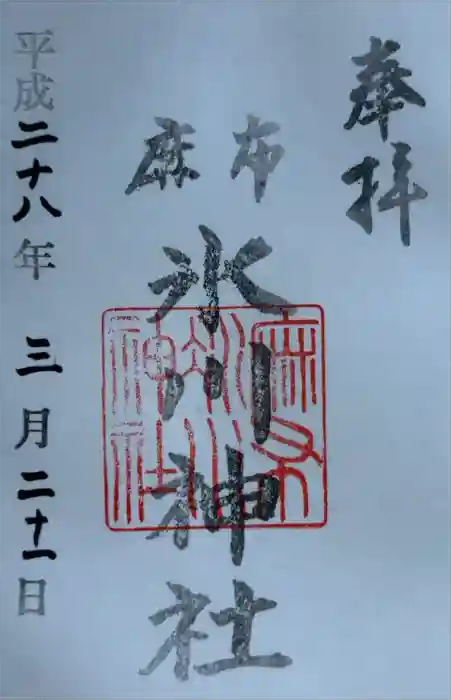 奉拝
麻布
氷川神社
麻布
氷川
神社
平成二十八年 三月二十一日